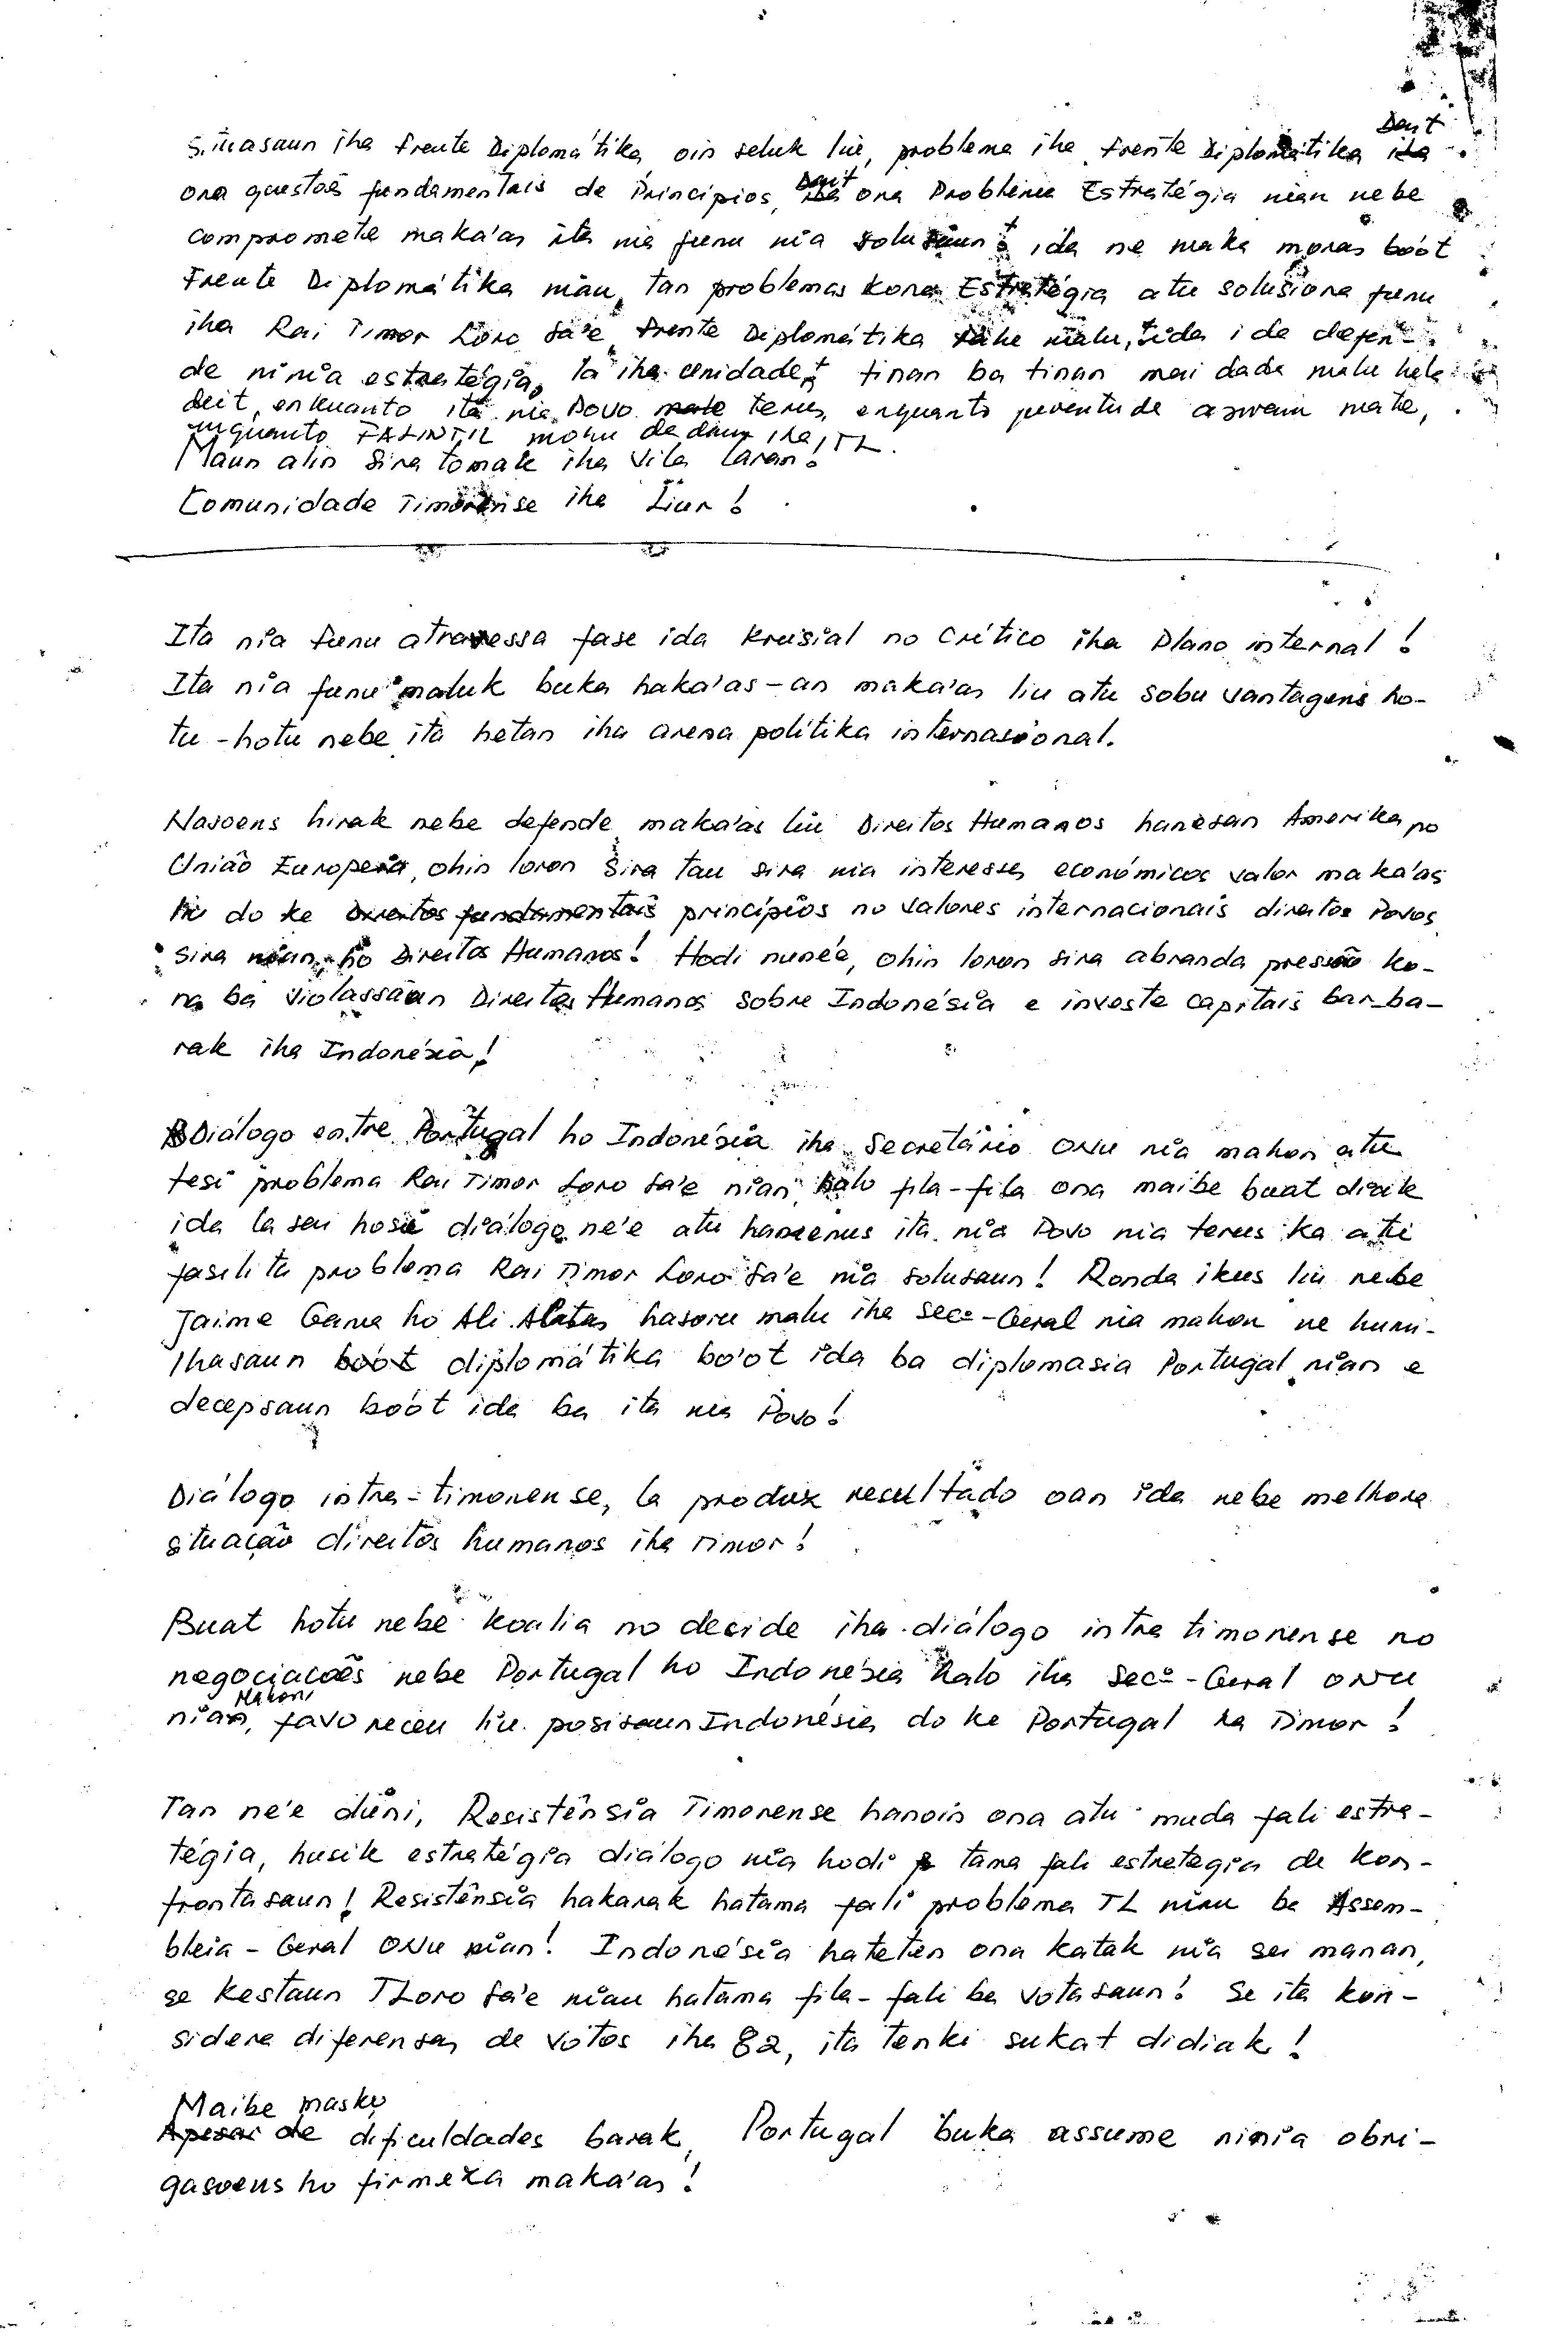 Situasaun iha frente Diplomátika oin seluk liu, problema iha frente Diplomátika Dait
ona questoēs fundamentais de Principios, Dait ona Problema Estratégia nian nebe
compromete maka'as ita nia funu nia solusaun! ida ne maka moras boót
Frente Diplomátika nian, tan problemas kona Estratégia atu solusiona funu
iha Rai Timor Loro Sa'e, frente Diplomátika malu, ida ida defen-
de ninia estratégia, la iha unidade! tinan ba tinan mai dada malu hela
deit, enkuanto ita nia Povo terus, enquanto juventude aswain mate,
enquanto FALINTIL mohu dadaun iha TL.
Maun alin sira tomak iha Vila laran!
Comunidade Timorense iha Liur!
Ita nia funu atravessa fase ida krusial no Crítico iha Plano internal!
Ita nia funu maluk buka haka'as-an maka'as liu atu sobu vantagens ho-
tu-hotu nebe ita hetan iha arena polítika internasional.
Nasoens hirak nebe defende maka'as liu Direitos Humanos hanesan Amerika no
União Europeia, ohin loron Sira tau sira nia interesses económicos valor maka'as
liu do ke Direitos fundamentais princípios no valores internacionais direitos Povos
sira nian ho Direitos Humanos! Hodi nuné'e, ohin loron sira abranda pressão ko-
na ba violassaun Direitos Humanos sobre Indonésia e investe capitais bar-ba-
rak iha Indonésia!
Diálogo entre Portugal ho Indonésia iha Secretário ONU nia mahon atu
tesi problema Rai Timor Loro Sa'e nian, halo fila-fila ona maibe buat diak
ida la seu hosi diálogo ne'e atu hamenus ita nia Povo nia terus ka atu
fasilita problema Rai Timor Loro Sa'e nia solusaun! Ronda ikus liu nebe
Jaime Gama ho Ali Alatas hasoru malu iha Secº-Geral nia mahon ne humi-
lhasaun boót diplomátika bo'ot ida ba diplomasia Portugal nian e
decepsaun boót ida ba ita nia Povo!
Diálogo intra-timorense, la produz resultado oan ida nebe melhora
situação direitos humanos iha Timor!
Buat hotu nebe koalia no decide iha diálogo intra timorense no
negociacoēs nebe Portugal ho Indonésia halo iha Secº-Geral ONU
nian Mahon, favoreceu liu posisaun Indonésia do ke Portugal ka Timor!
Tan ne'e duni, Resistênsia Timorense hanoin ona atu muda fali estra-
tégia, husik estratégia diálogo nia hodi tama fali estrategia de kon-
frontasaun! Resistênsia hakarak hatama fali problema TL nian ba Assem-
bleia-Geral ONU nian! Indonésia hateten ona katak nia sei manan,
se kestaun TLoro Sa'e nian hatama fila-fali ba votasaun! Se ita kon-
sidera diferensas de votos iha 82, ita tenki sukat didiak!
Maibe masky
Apesar de dificuldades barak, Portugal buka assume ninia obri-
gasoens ho firmeza maka'as!